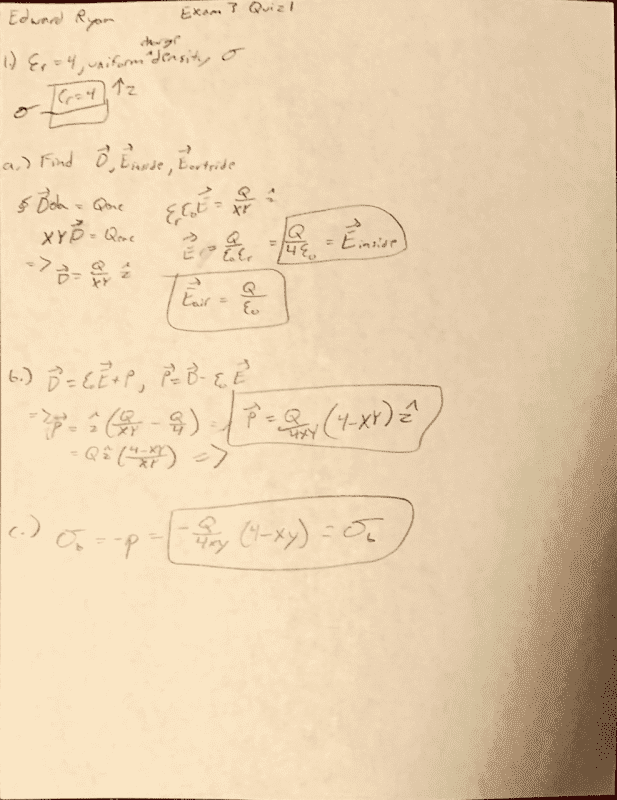 Edward Ryan Exam 3 Quiz 1
1.) εr = 4, uniform charge density, σ
εr = 4 ↑z
σ
a.) Find D⃗, E⃗inside, E⃗outside
∮ D⃗da = Qenc εrε0E⃗ = Q/XY ẑ
XYD⃗ = Qenc E⃗ = Q/ε0εr = Q/4ε0 = E⃗inside
=> D⃗ = Q/XY ẑ
E⃗air = Q/ε0
b.) D⃗ = ε0E⃗ + P, P⃗ = D⃗ - ε0E⃗
=> P⃗ = ẑ (Q/XY - Q/4) = P⃗ = Q/4XY (4-XY) ẑ
= Qẑ (4-XY/XY) =>
c.) σb = -p = -Q/4xy (4-xy) = σb